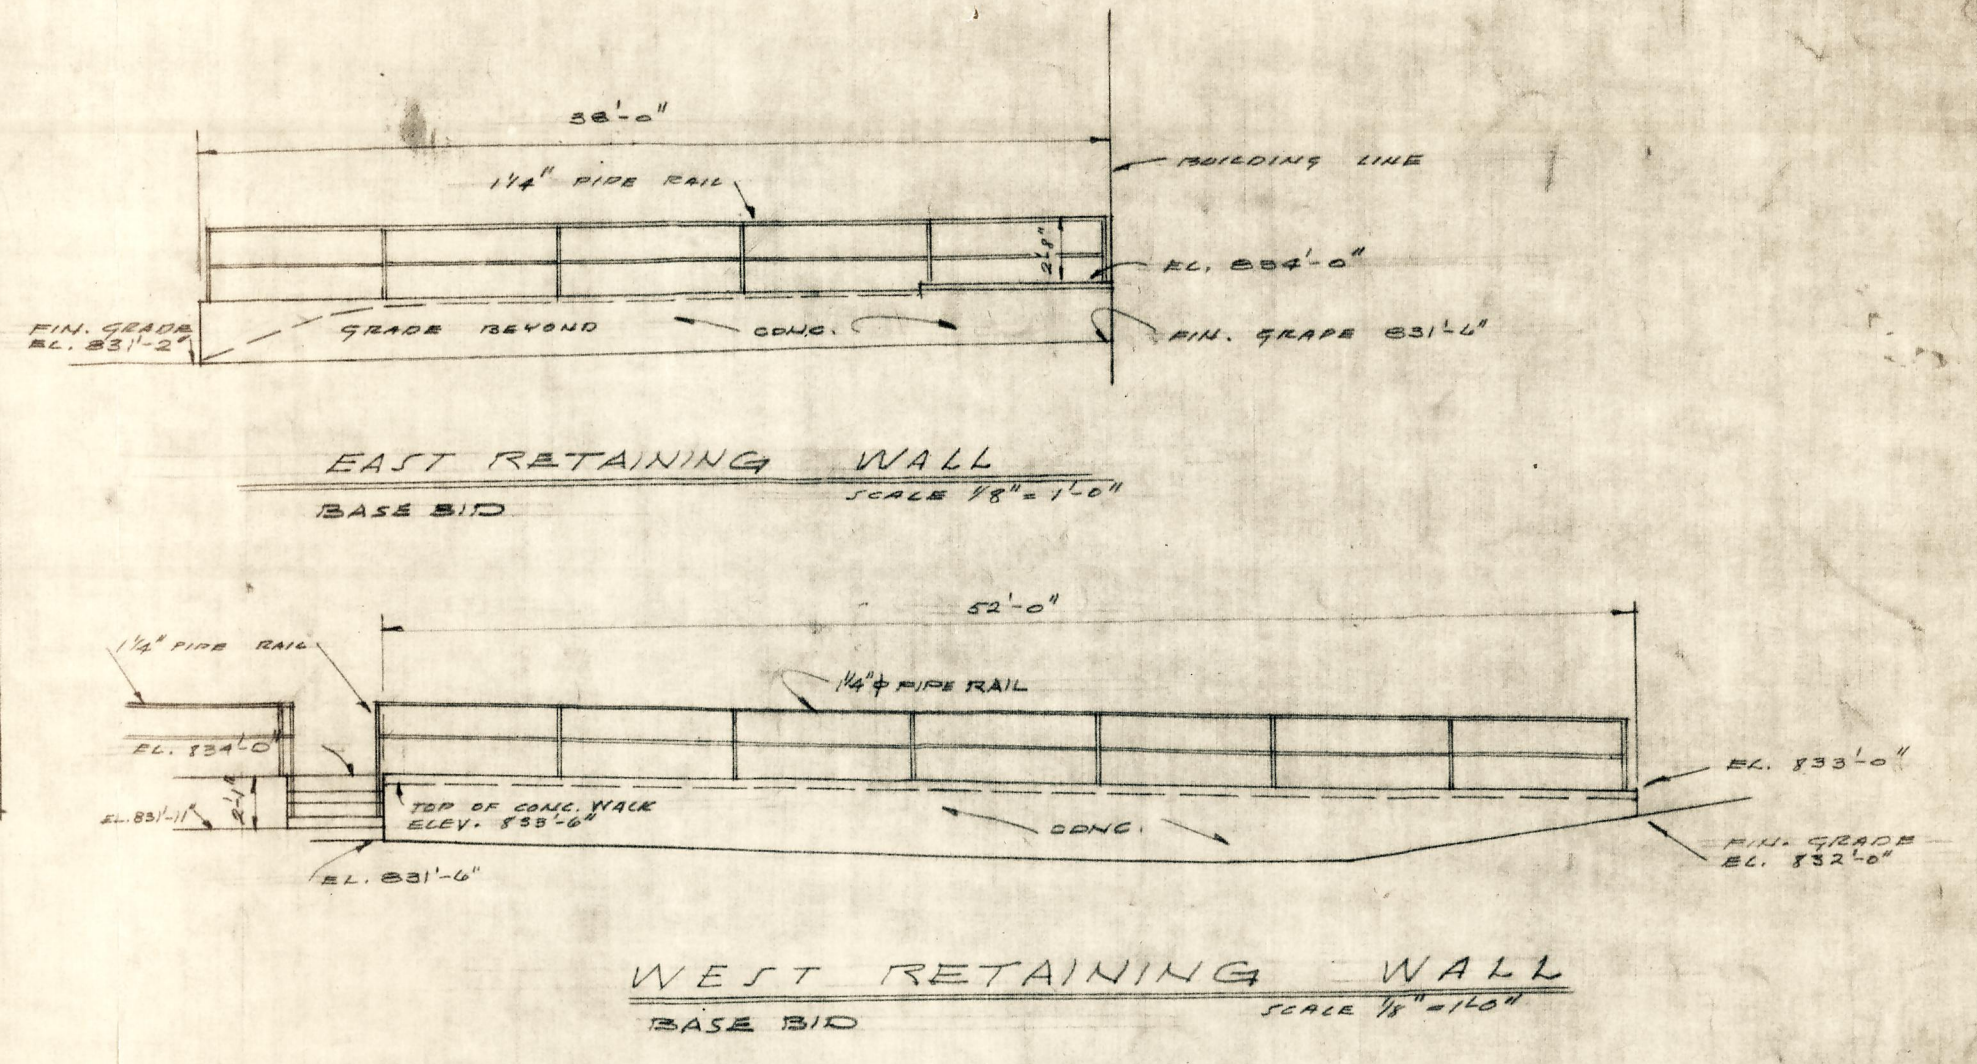 38'-0"
1 1/4" PIPE RAIL
BUILDING LINE
2'-8"
EL. 834'-0"
FIN. GRADE
EL. 831'-2"
GRADE BEYOND
CONC.
FIN. GRADE 831'-6"
EAST RETAINING WALL
SCALE 1/8" = 1'-0"
BASE BID
52'-0"
1 1/4" PIPE RAIL
1 1/4" ϕ PIPE RAIL
EL. 834'-0"
EL. 833'-0"
2'-1"
TOP OF CONC. WALK
ELEV. 833'-6"
EL. 831'-11"
CONC.
FIN. GRADE
EL. 832'-0"
EL. 831'-6"
WEST RETAINING WALL
SCALE 1/8" = 1'-0"
BASE BID